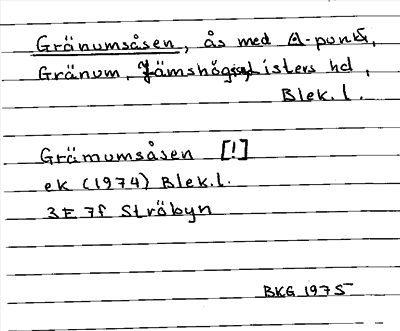 Gränumsåsen, ås med △-punkt,
Gränum, Jämshögs sn, Listers hd,
Blek.l.
Grämumsåsen [!]
ek (1974) Blek.l.
3E 7f Ströbyn
BKG 1975